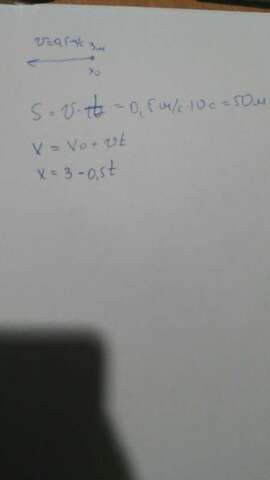 v=0,5м/с 3м
x₀
S = v·t = 0,5м/с·10с = 50м
x = x₀ - vt
x = 3 - 0,5t